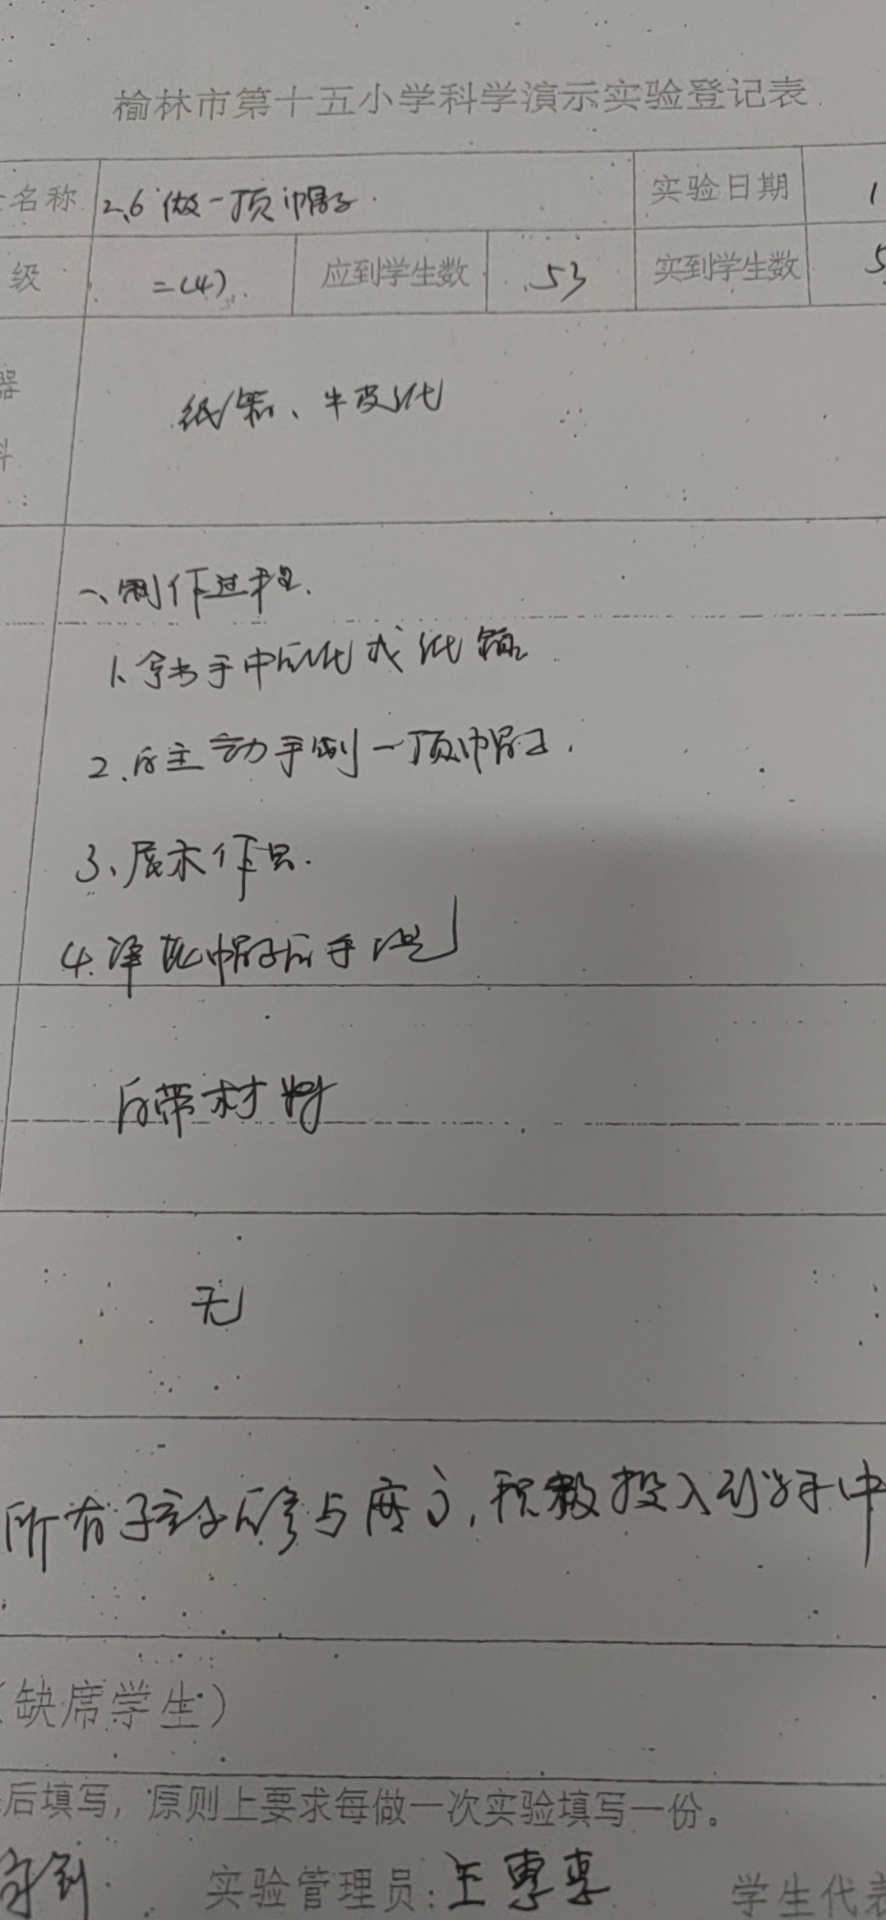 榆林市第十五小学科学演示实验登记表
名称 2.6 做一顶帽子 实验日期 1
级 二(4) 应到学生数 53 实到学生数 5
器 纸箱、牛皮纸
料
一、制作过程.
1、拿出手中的纸或纸箱
2.自主动手制一顶帽子.
3、展示作品.
4.评 帽子的手
自带材料
无
所有孩子的参与度高,积极投入到 中
(缺席学生)
后填写,原则上要求每做一次实验填写一份。
实验管理员:王 学生代表